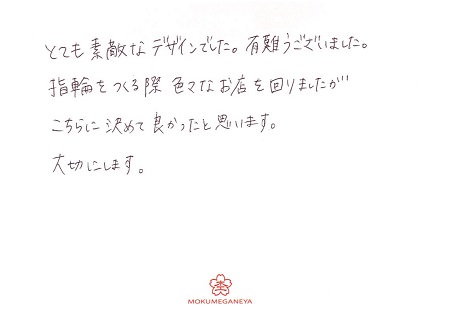 とても素敵なデザインでした。有難うございました。
指輪をつくる際色々なお店を回りましたが
こちらに決めて良かったと思います。
大切にします。
MOKUMEGANEYA